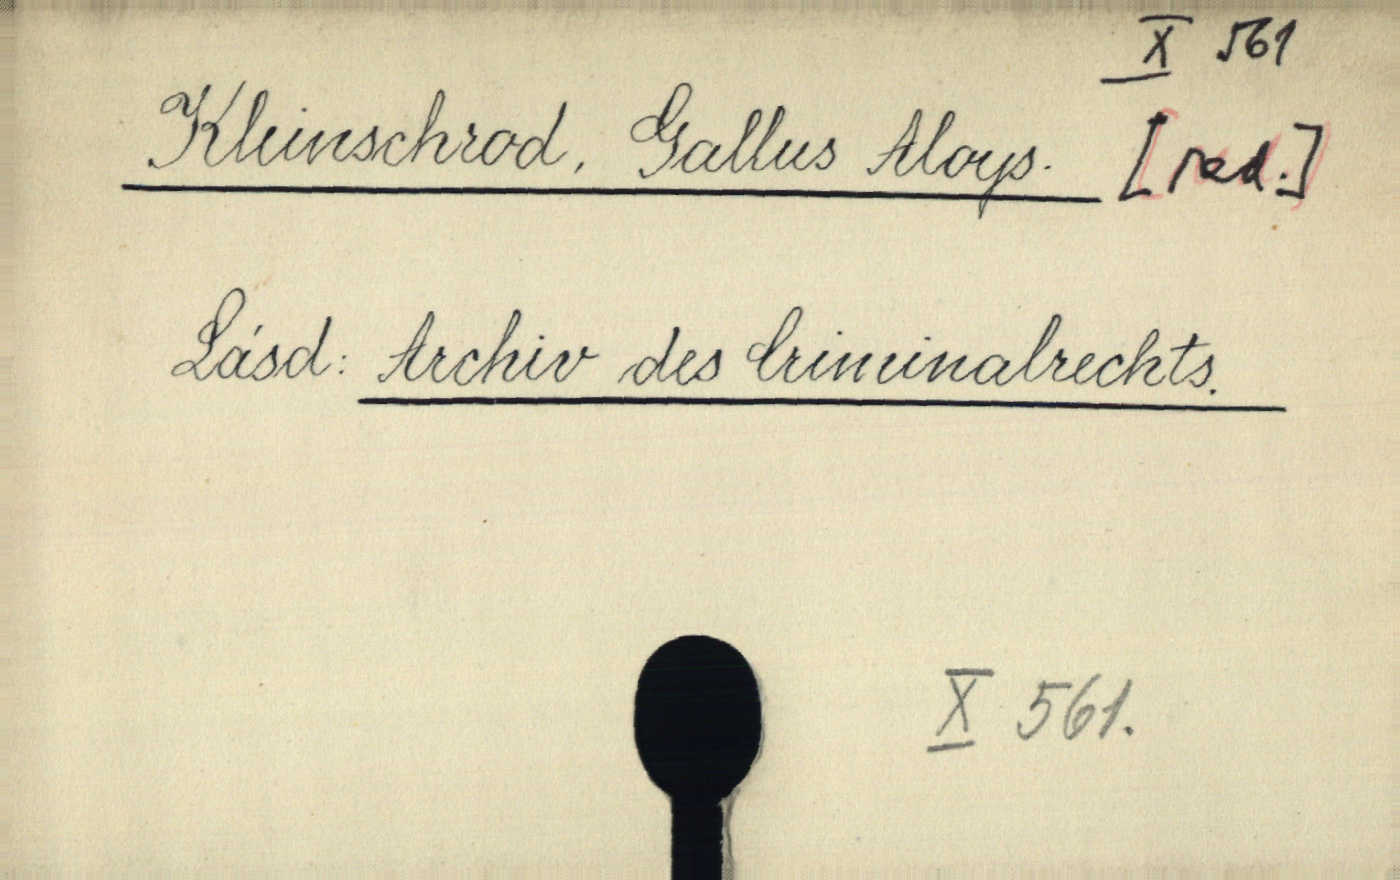 X 561
Kleinschrod, Gallus Aloys. [red.]
Lásd: Archiv des Criminalrechts.
X 561.